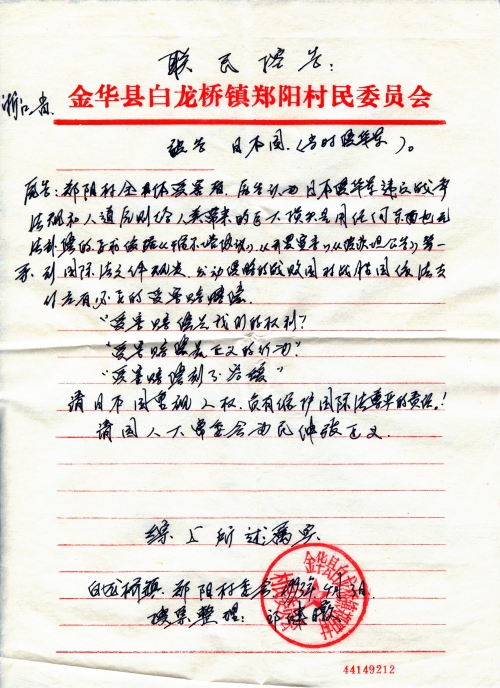 联民控告:
浙江省
金华县白龙桥镇郑阳村民委员会
被告 日本国(当时侵华军)。
原告:郑阳村全体受害者,原告认为日本侵华军违反战争
法规和人道原则给人类带来的巨大损失是用任何东西也无
法补偿的
到国际法文件规定,发动侵略的战败国对战胜国依法支
付应有
受害赔偿
“受害赔偿是我们的权利?
“受害赔偿是正义的行为?
“受害赔偿刻不容缓”
请日本国重视人权,负有保护国际法尊严的责任!
请国人大常委会为民伸张正义
综上所述属实
白龙桥镇 郑阳村委会 1993年4月3日
搜集整理:
金华县白龙桥镇郑阳村
村民委员会
44149212